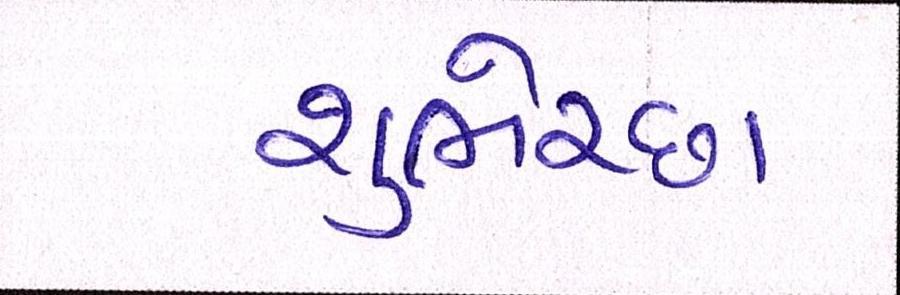 શુભેચ્છા